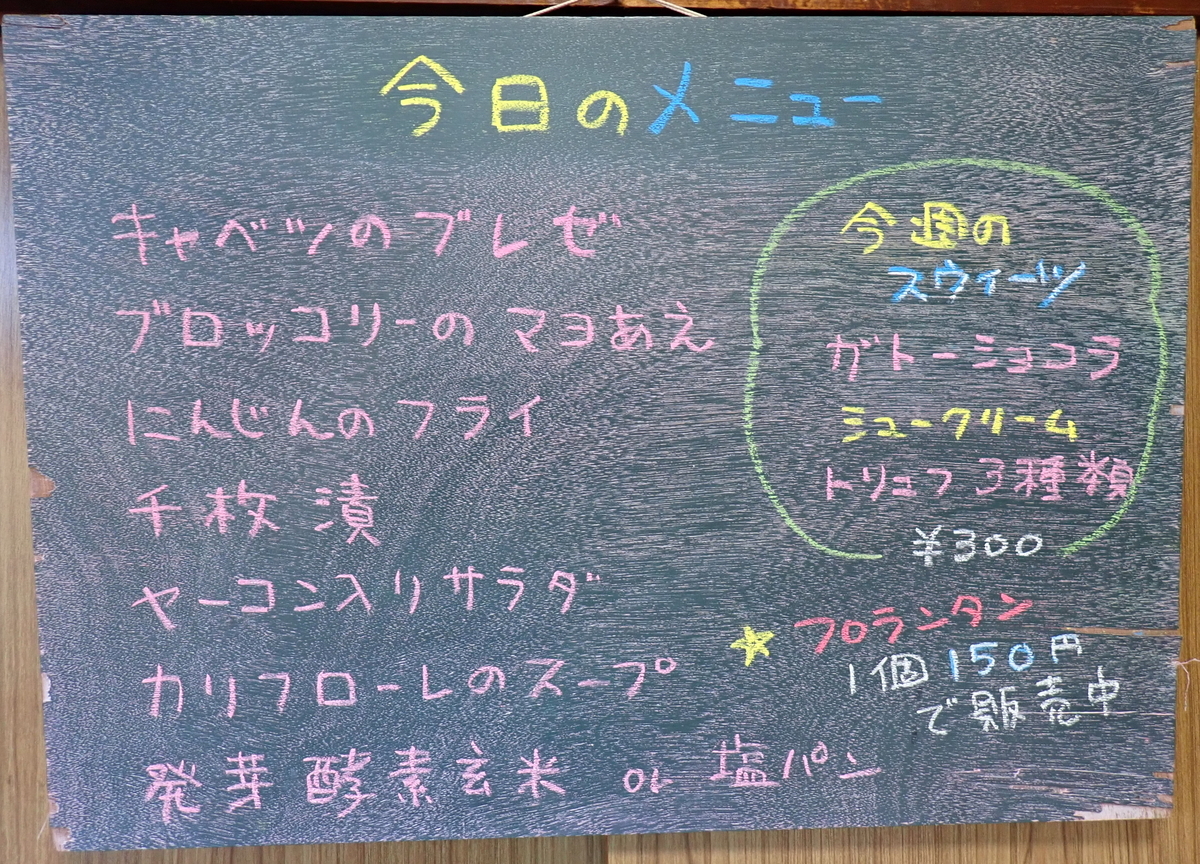 今日のメニュー
キャベツのブレゼ
ブロッコリーのマヨあえ
にんじんのフライ
千枚漬
ヤーコン入りサラダ
カリフローレのスープ
発芽酵素玄米 or 塩パン
今週の
スウィーツ
ガトーショコラ
シュークリーム
トリュフ3種類
¥300
★フロランタン
1個150円
で販売中